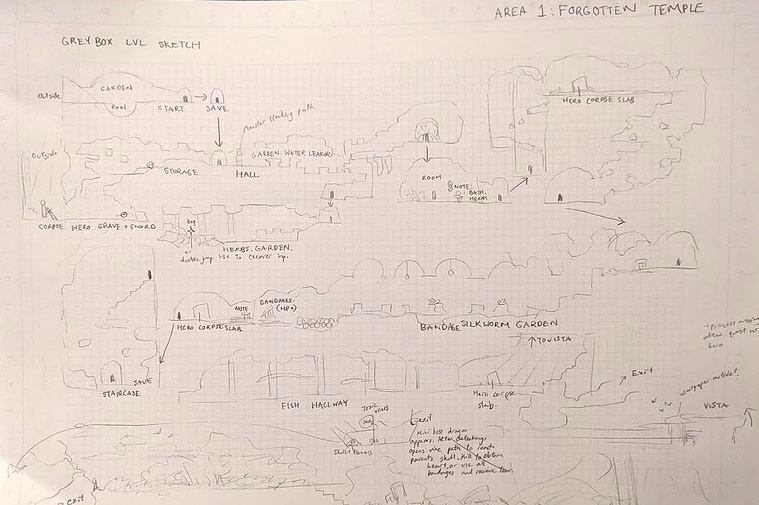 AREA 1: FORGOTTEN TEMPLE
GREYBOX LVL SKETCH
GARDEN
Outside
Pool
START
SAVE
HERO CORPSE SLAB
blocking path
Outside
GARDEN. WATER LEAKING
STORAGE
HALL
ROOM
NOTE:
BATH.
HERBS
CORPSE HERO GRAVE + SWORD
Key
HERBS. GARDEN.
jump use to recover hp.
NOTE
BANDAGES.
(HP+)
HERO CORPSE SLAB
BANDAGE SILKWORM GARDEN
SAVE
STAIRCASE
TO VISTA
FISH HALLWAY
Hero corpse
slab.
Exit
newspaper article?
VISTA
Toxic
exit
Mini boss dragon
appears. After defeating,
opens path to
parents skull. Kill to obtain
heart, or use all
bandages and
Exit